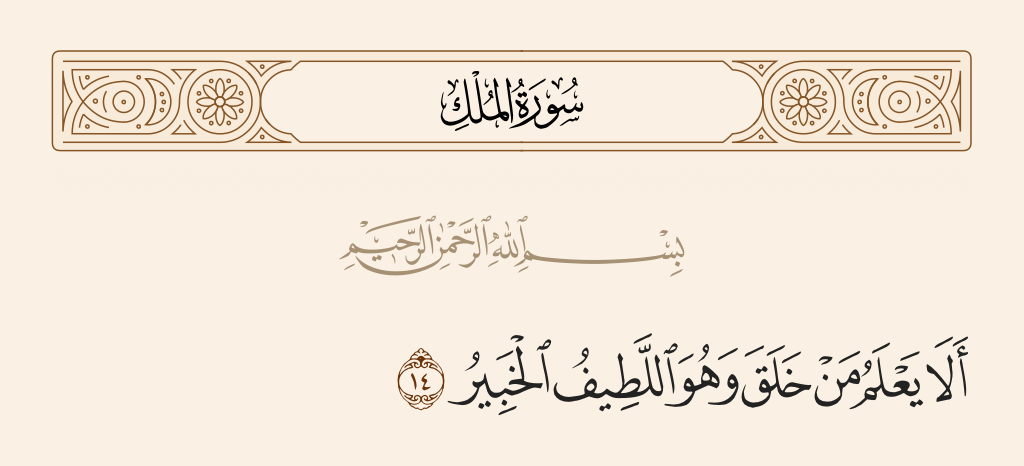 سُورَةُ الْمُلْكِ
بِسْمِ ٱللَّهِ ٱلرَّحْمَٰنِ ٱلرَّحِيمِ
أَلَا يَعْلَمُ مَنْ خَلَقَ وَهُوَ ٱللَّطِيفُ ٱلْخَبِيرُ ١٤